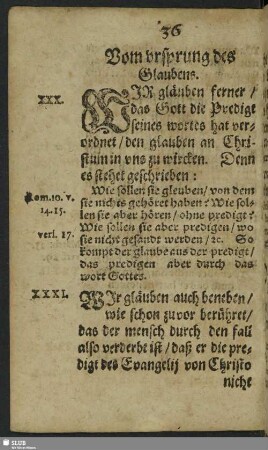 36
Vom vrsprung des
Glaubens.
XXX.
WIR gläuben ferner /
das Gott die Predigt
seines wortes hat ver-
ordnet / den glauben an Chri-
stum in vns zu wircken. Denn
es stehet geschrieben:
Rom. 10. v.
14. 15.
Wie sollen sie gleuben / von dem
sie nichts gehöret haben? Wie sol-
len sie aber hören / ohne predigt?
Wie sollen sie aber predigen / wo
sie nicht gesandt werden / ꝛc. So
verf. 17.
kompt der glaube aus der predigt /
das predigen aber durch das
wort Gottes.
XXXI.
WIr gläuben auch beneben /
wie schon zuvor berühret /
das der mensch durch den fall
also verderbt ist / daß er die pre-
digt des Evangelij von Christo
nicht
SLUB